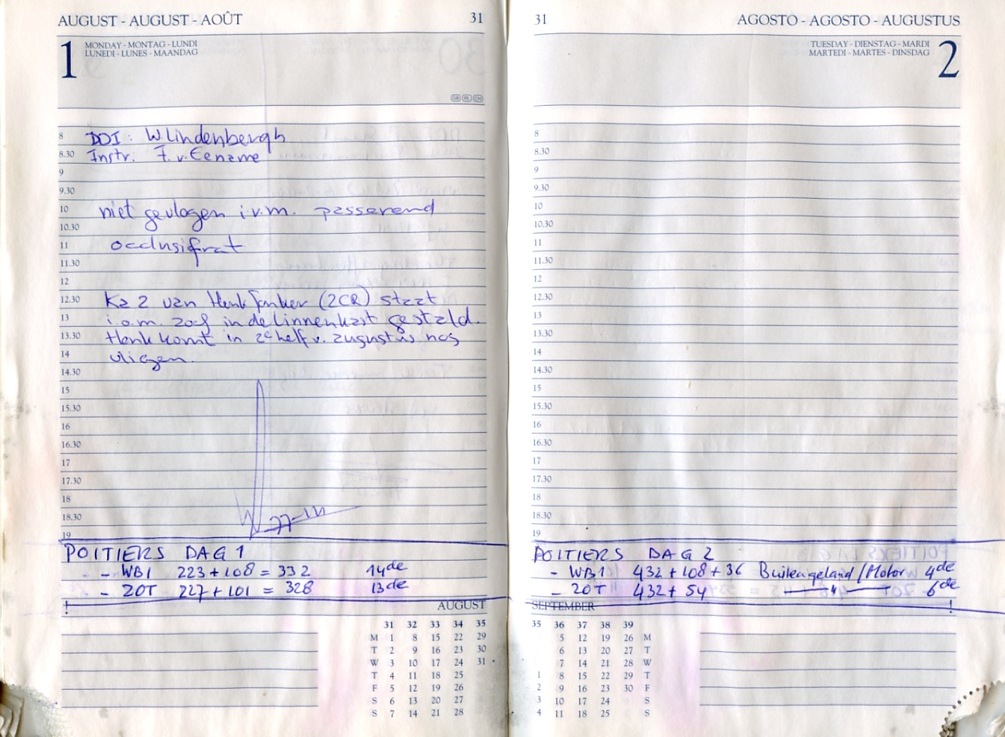 AUGUST - AUGUST - AOÛT 31
1 MONDAY - MONTAG - LUNDI
LUNEDI - LUNES - MAANDAG
8 DDI: W Lindenbergh
8.30 Instr. F. v. Eename
9
9.30
10 niet gevlogen i.v.m. passerend
10.30
11 occlusifrat
11.30
12
12.30 Ka 2 van Henk Jonker (2CR) staat
13 i.o.m. in de linnenkast gestald.
13.30 Henk komt in 2e helft v. augustus nog
14 vliegen.
14.30
15
15.30
16
16.30
17
17.30
18
18.30
19
POITIERS DAG 1
- WB1 223 + 108 = 332 14de
- ZOT 227 + 101 = 328 13de
AUGUST
31 32 33 34 35
M 1 8 15 22 29
T 2 9 16 23 30
W 3 10 17 24 31
T 4 11 18 25
F 5 12 19 26
S 6 13 20 27
S 7 14 21 28
31 AGOSTO - AGOSTO - AUGUSTUS
TUESDAY - DIENSTAG - MARDI 2
MARTEDI - MARTES - DINSDAG
8
8.30
9
9.30
10
10.30
11
11.30
12
12.30
13
13.30
14
14.30
15
15.30
16
16.30
17
17.30
18
18.30
19
POITIERS DAG 2
- WB1 432 + 108 + 36 Buitengeland/Motor 4de
- ZOT 432 + 54 —"— 6de
SEPTEMBER
35 36 37 38 39
5 12 19 26 M
6 13 20 27 T
7 14 21 28 W
1 8 15 22 29 T
2 9 16 23 30 F
3 10 17 24 S
4 11 18 25 S